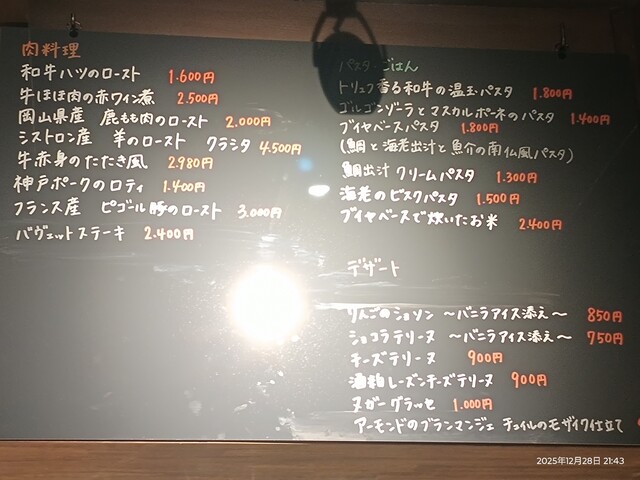 肉料理
和牛ハツのロースト 1.600円
牛ほほ肉の赤ワイン煮 2.500円
岡山県産 鹿もも肉のロースト 2.000円
シストロン産 羊のロースト クラシタ 4.500円
牛赤身のたたき風 2.980円
神戸ポークのロティ 1.400円
フランス産 ビゴール豚のロースト 3.000円
バヴェットステーキ 2.400円
パスタ・ごはん
トリュフ香る和牛の温玉パスタ 1.800円
ゴルゴンゾーラとマスカルポーネのパスタ 1.400円
ブイヤベースパスタ 1.800円
(鯛と海老出汁と魚介の南仏風パスタ)
鯛出汁クリームパスタ 1.300円
海老のビスクパスタ 1.500円
ブイヤベースで炊いたお米 2.400円
デザート
りんごのショソン 〜バニラアイス添え〜 850円
ショコラテリーヌ 〜バニラアイス添え〜 750円
チーズテリーヌ 900円
酒粕レーズンチーズテリーヌ 900円
ヌガーグラッセ 1.000円
アーモンドのブランマンジェ チュイルのモザイク仕立て
2025年12月28日 21:43